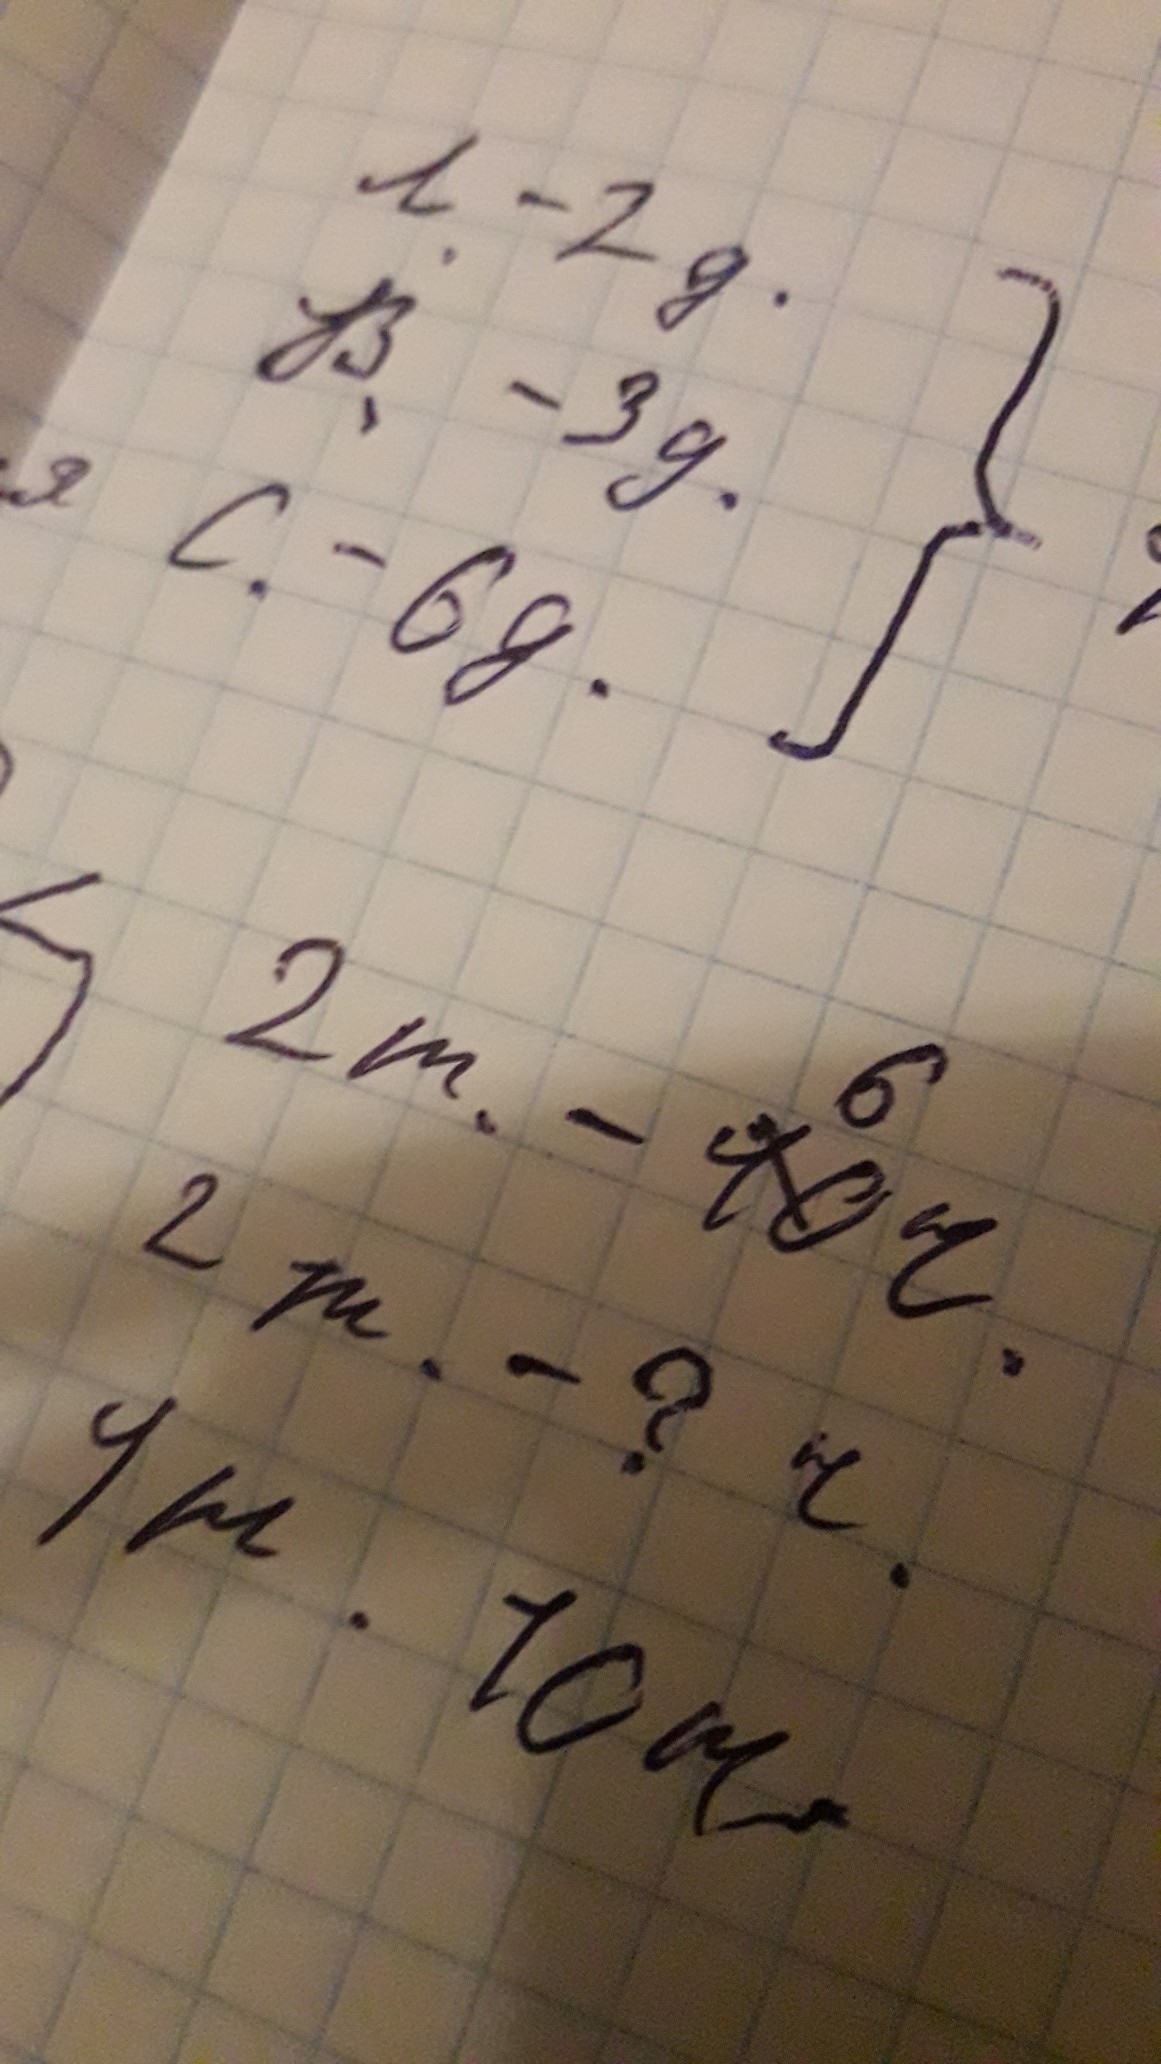 1. - 2 д.
В. - 3 д.
С. - 6 д.
2 т. - 6 ч.
2 т. - ? ч.
4 т. 10 ч.